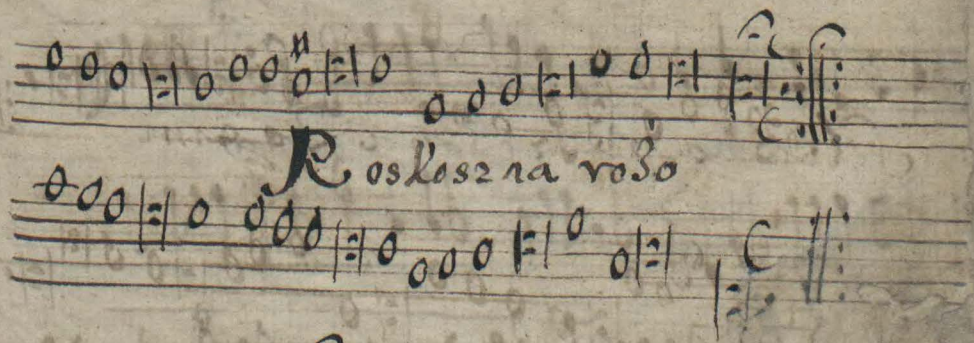 Roskoszna rożo